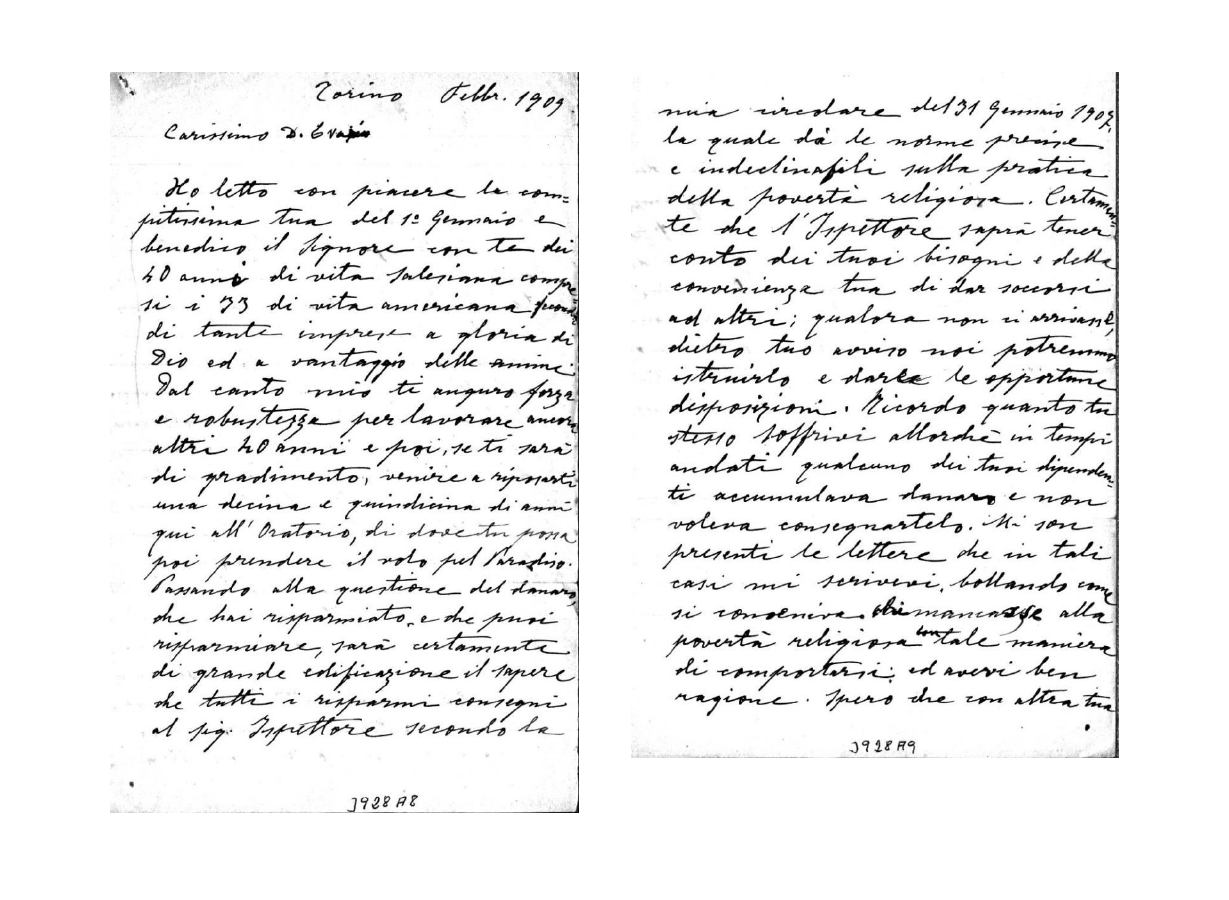 Torino Febbr. 1909
Carissimo D. Evasio
Ho letto con piacere la com=
pitissima tua del 1º Gennaio e
benedico il Signore con te dei
40 anni di vita Salesiana compre
si i 33 di vita americana feconda
di tante imprese a gloria di
Dio ed a vantaggio delle anime.
Dal canto mio ti auguro forza
e robustezza per lavorare ancora
altri 40 anni e poi, se ti sarà
di gradimento, venire a riposarti
una decina e quindicina di anni
qui all' Oratorio, di dove tu possa
poi prendere il volo pel Paradiso.
Passando alla questione del danaro,
che hai risparmiato, e che puoi
risparmiare, sarà certamente
di grande edificazione il sapere
che tutti i risparmi consegni
al sig. Ispettore secondo la
J928A8
mia circolare del 31 Gennaio 1907,
la quale dà le norme precise
e indeclinabili sulla pratica
della povertà religiosa. Certamen-
te che l'Ispettore saprà tener
conto dei tuoi bisogni e della
convenienza tua di dar soccorsi
ad altri; qualora non ci arrivasse,
dietro tuo avviso noi potremmo
istruirlo e darle le opportune
disposizioni. Ricordo quanto tu
stesso soffrivi allorchè in tempi
andati qualcuno dei tuoi dipenden-
ti accumulava danaro e non
voleva consegnartelo. Mi son
presenti le lettere che in tali
casi mi scrivevi, bollando come
si conveniva chi mancasse alla
povertà religiosa con tale maniera
di comportarsi; ed avevi ben
ragione. Spero che con altra tua
J928A9